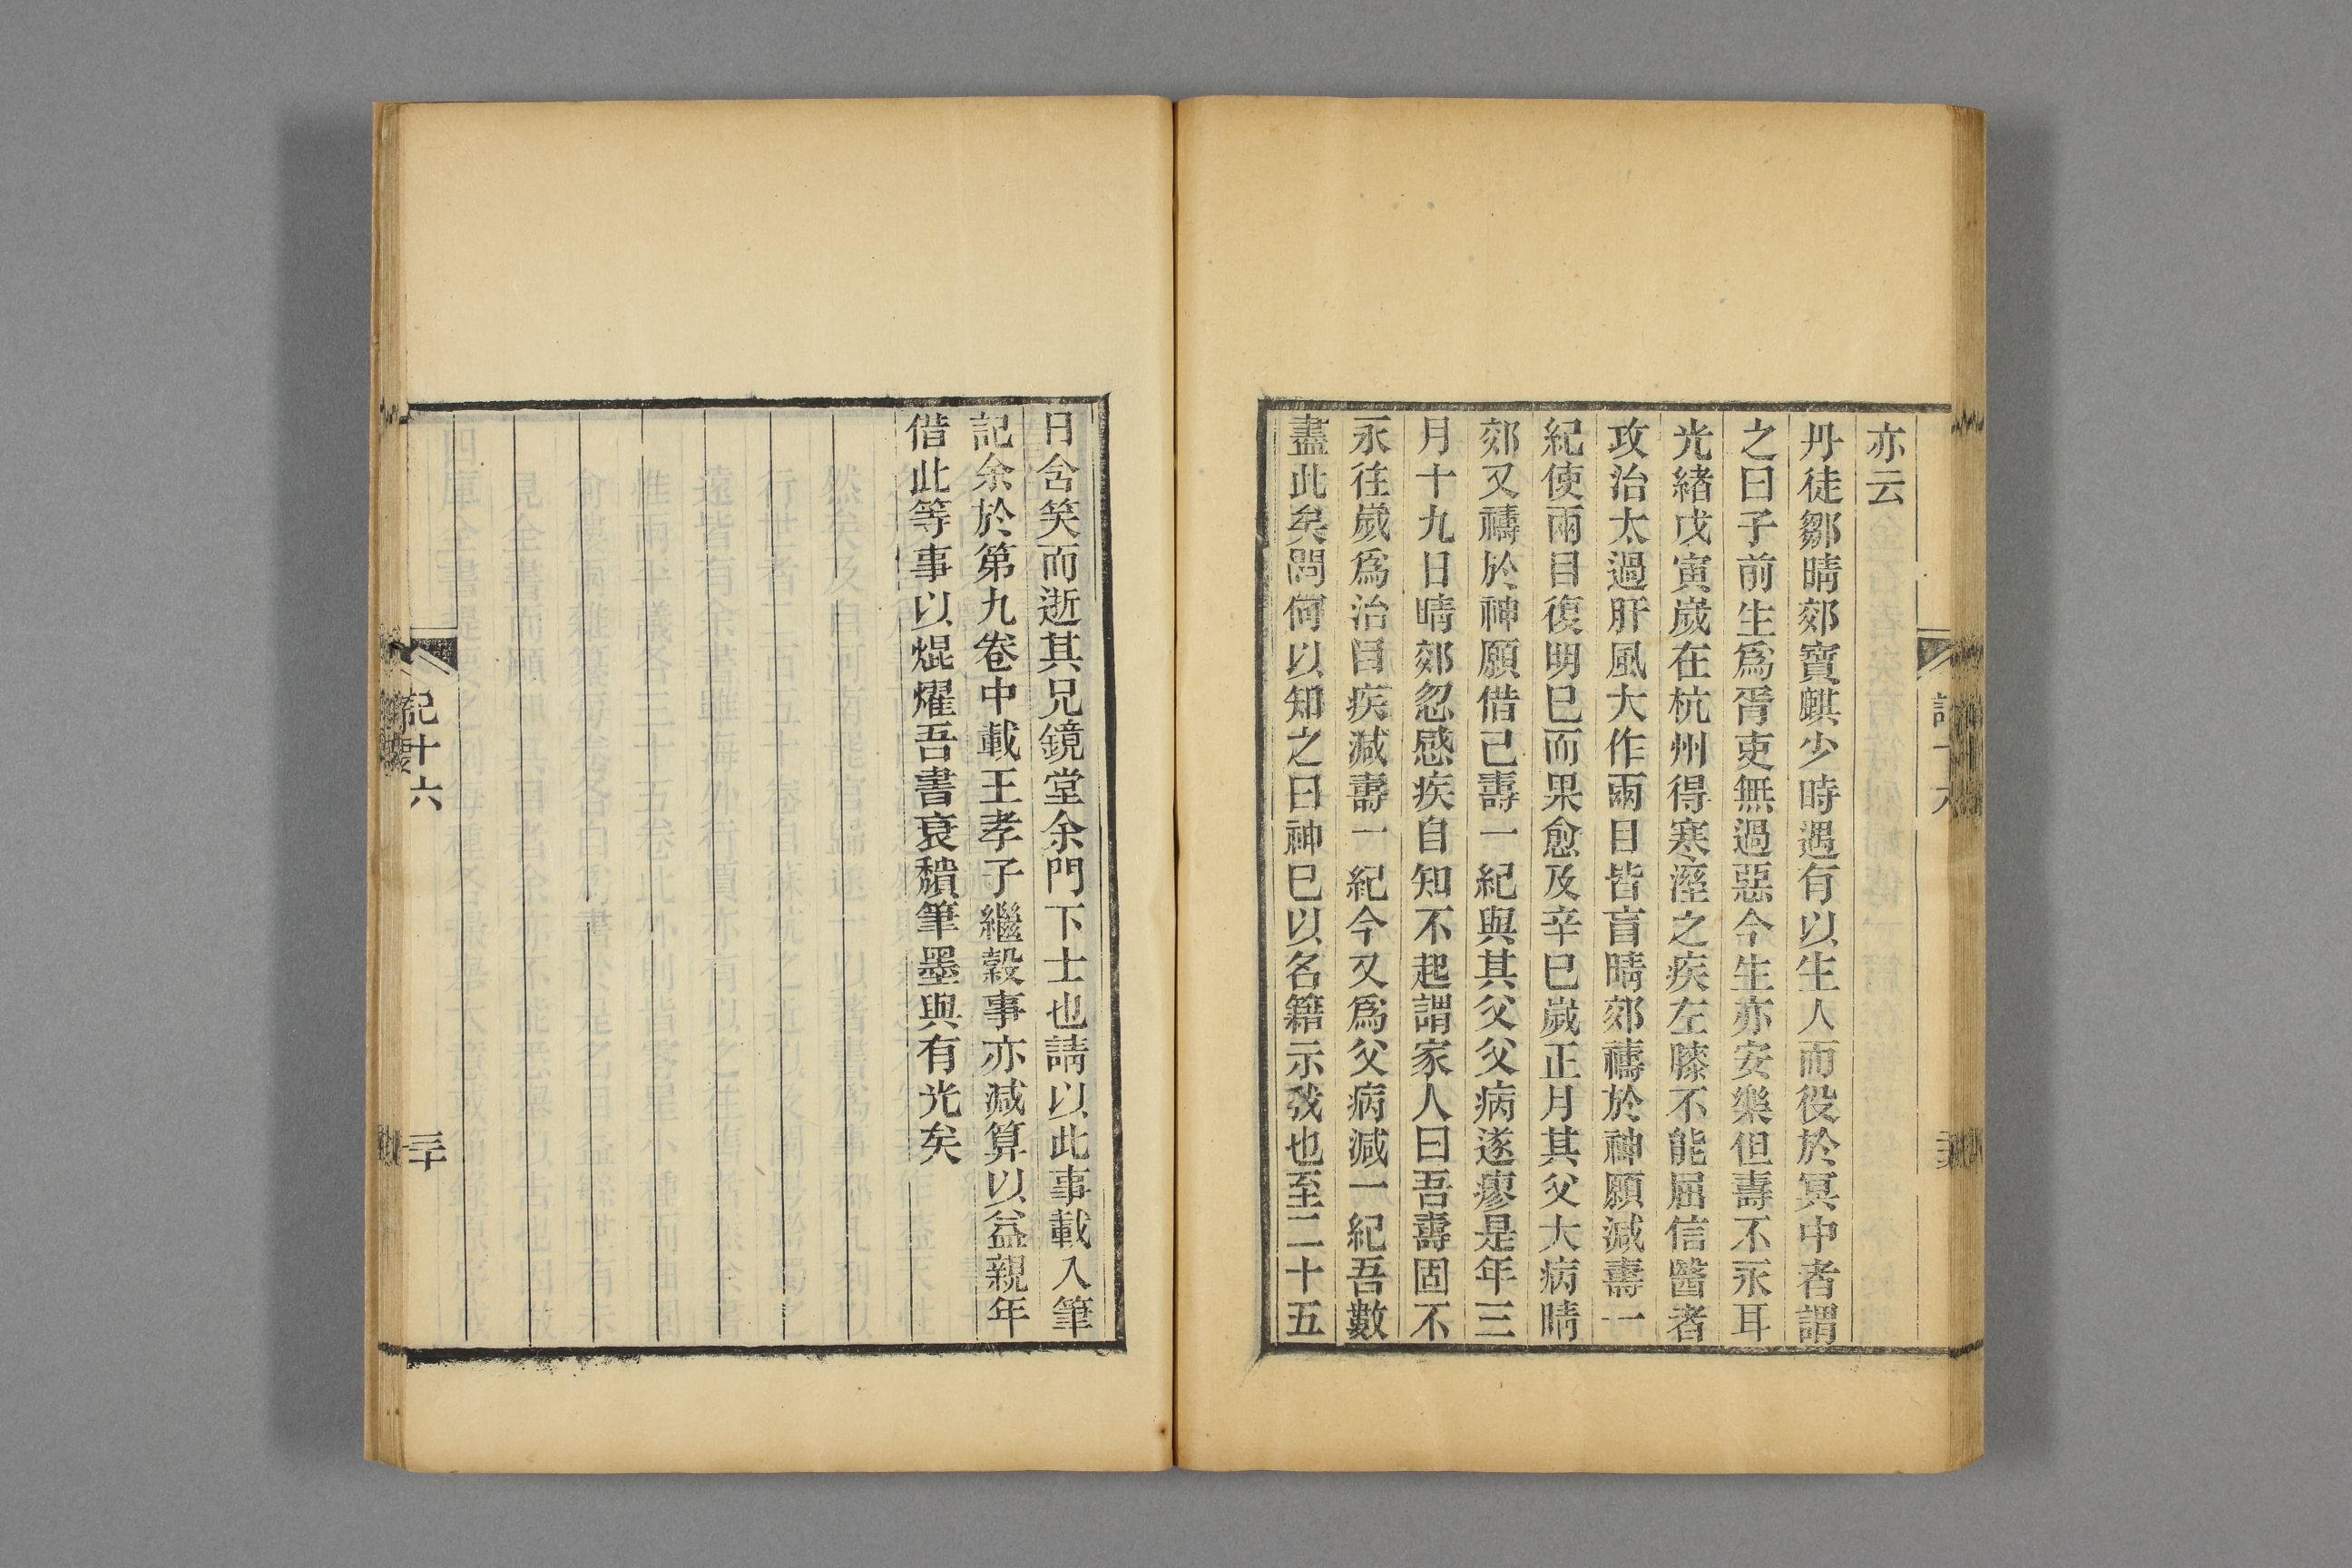 亦云
丹徒鄒晴郊寶麒少時遇有以生人而役於冥中者謂
之曰子前生爲胥吏無過惡今生亦安樂但壽不永耳
光緒戊寅歲在杭州得寒溼之疾左膝不能屈信醫者
攻治太過肝風大作兩目皆盲晴郊禱於神願減壽一
紀使兩目復明巳而果愈及辛巳歲正月其父大病晴
郊又禱於神願借己壽一紀與其父父病遂瘳是年三
月十九日晴郊忽感疾自知不起謂家人曰吾壽固不
永往歲爲治目疾減壽一紀今又爲父病減一紀吾數
盡此矣問何以知之曰神巳以名籍示我也至二十五
日含笑而逝其兄鏡堂余門下士也請以此事載入筆
記余於第九卷中載王孝子繼穀事亦減算以益親年
借此等事以焜燿吾書衰穨筆墨與有光矣
記十六
三十